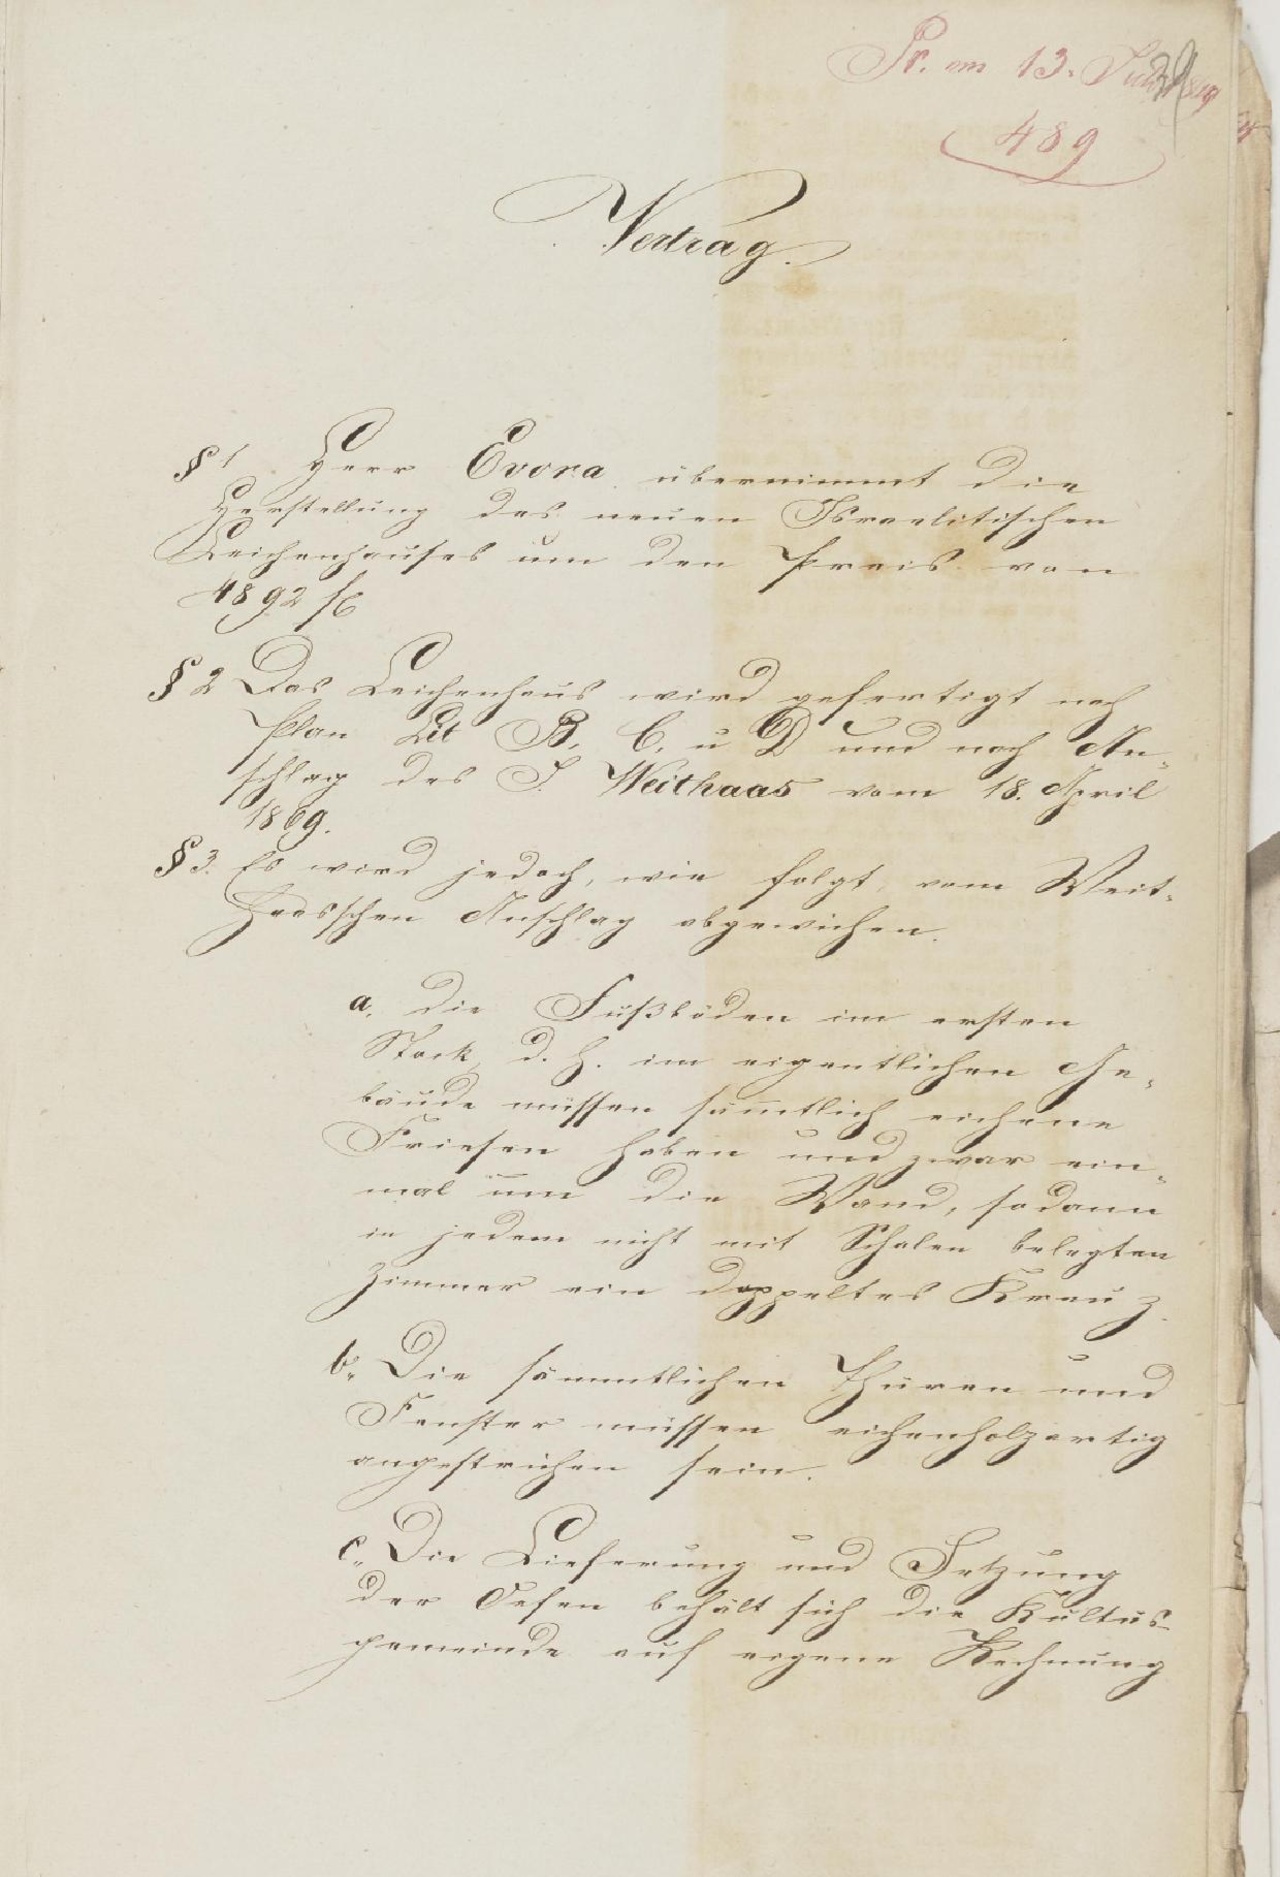 Pr. am 13. Juli 1869
489
Vertrag.
§ 1 Herr Evora übernimmt die
Herstellung des neuen Israelitischen
Leichenhauses um den Preis von
4892 fl
§ 2 Das Leichenhaus wird gefertigt nach
Plan Lit B, C, u D und nach An-
schlag des J. Weithaas vom 18. April
1869.
§ 3. Es wird jedoch, wie folgt, vom Weit-
haasschen Anschlag abgewichen.
a, die Fußböden im ersten
Stock, d. h. im eigentlichen Ge-
bäude müssen sämtlich eichene
Friesen haben und zwar ein-
mal um die Wand, sodann
in jedem nicht mit Schalen belegten
Zimmer ein doppeltes Kreuz.
b, Die sämmtlichen Thüren und
Fenster müssen eichenholzartig
angestrichen sein.
c, Die Lieferung und Setzung
der Oefen behält sich die Kultus-
gemeinde auf eigene Rechnung